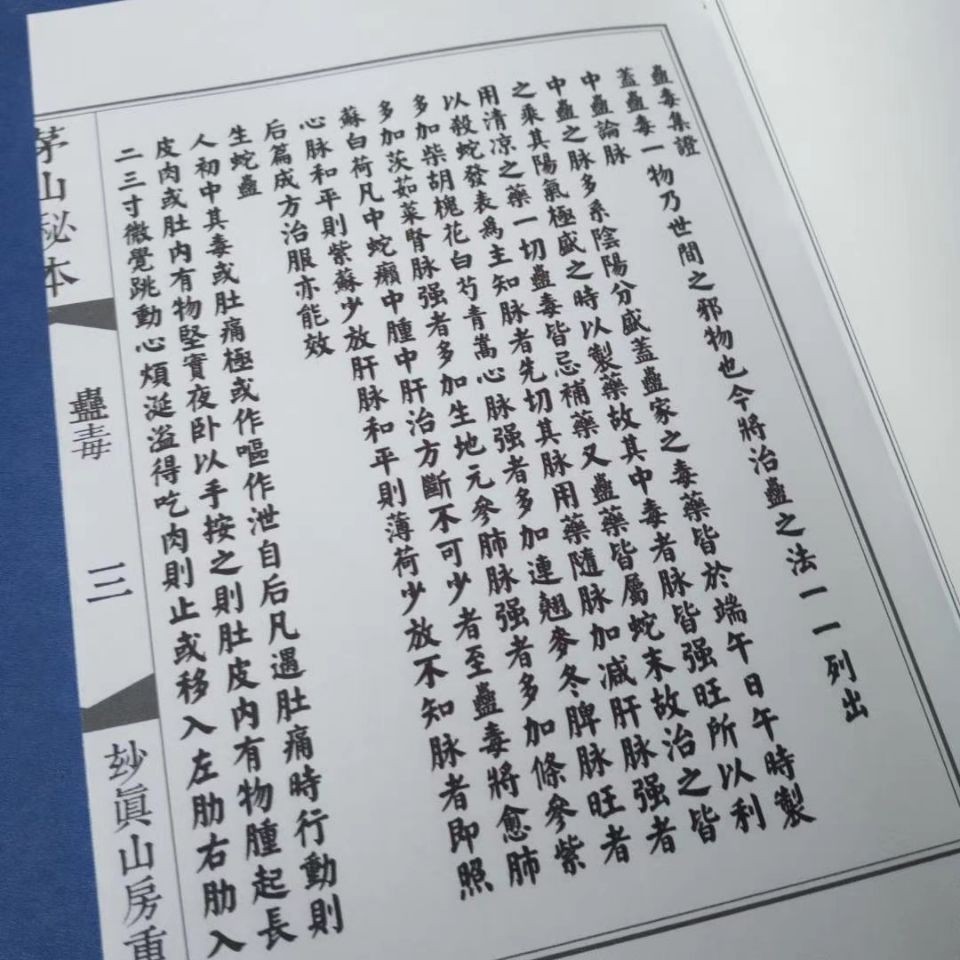 蠱毒集證
蓋蠱毒一物乃世間之邪物也令將治蠱之法一一列出
中蠱論脉
中蠱之脉多系陰陽分盛蓋蠱家之毒藥皆於端午日午時製
之乘其陽氣極盛之時以製藥故其中毒者脉皆强旺所以利
用清凉之藥一切蠱毒皆忌補藥又蠱藥皆屬蛇末故治之皆
以殺蛇發表爲主知脉者先切其脉用藥隨脉加减肝脉强者
多加柴胡槐花白芍青蒿心脉强者多加連翹麥冬脾脉旺者
多加茨茹菜腎脉强者多加生地元參肺脉强者多加條參紫
蘇白荷凡中蛇癩中腫中肝治方斷不可少者至蠱毒將愈肺
心脉和平則紫蘇少放肝脉和平則薄荷少放不知脉者即照
后篇成方治服亦能效
生蛇蠱
人初中其毒或肚痛極或作嘔作泄自后凡遇肚痛時行動則
皮肉或肚内有物堅實夜卧以手按之則肚皮内有物腫起長
二三寸微覺跳動心煩涎溢得吃肉則止或移入左肋右肋入
茅山秘本
蠱毒
三
玅眞山房重